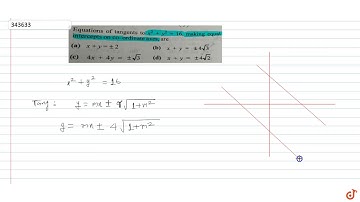 343633
Equations of tangents to x² + y² = 16 making equal
intercepts on co-ordinate axes, are
(a) x + y = ± 2 (b) x + y = ± 4√3
(c) 4x + 4y = ± √3 (d) x + y = ± 4√2
x² + y² = 16
Tang : y = mx ± 4√1+m²
y = mx ± 4√1+m²